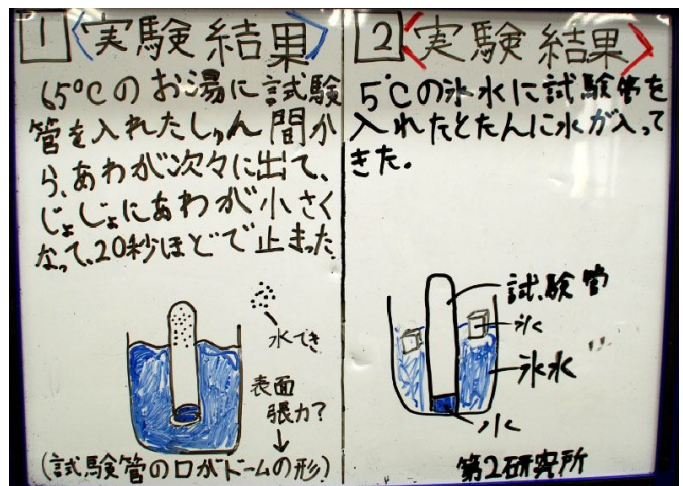 1 〈実験結果〉
65℃のお湯に試験
管を入れたしゅん間か
ら、あわが次々に出て、
じょじょにあわが小さく
なって、20秒ほどで止まった。
水てき
表面
張力?
↓
(試験管の口がドームの形)
2 〈実験結果〉
5℃の氷水に試験管を
入れたとたんに水が入って
きた。
試験管
氷
氷水
水
第2研究所